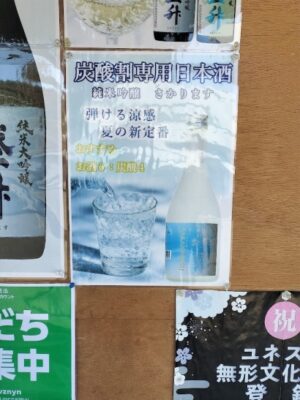 炭酸割専用日本酒
純米吟醸 さかります
弾ける涼感
夏の新定番
おすすめ
お酒6:炭酸4
純米大吟醸
升
だち
集中
祝
ユネス
無形文化
登録